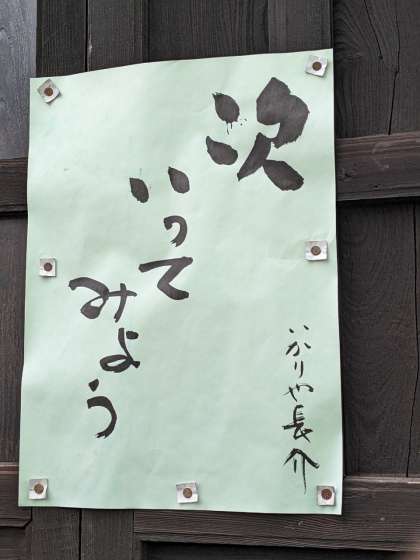 次
いってみよう
いかりや長介